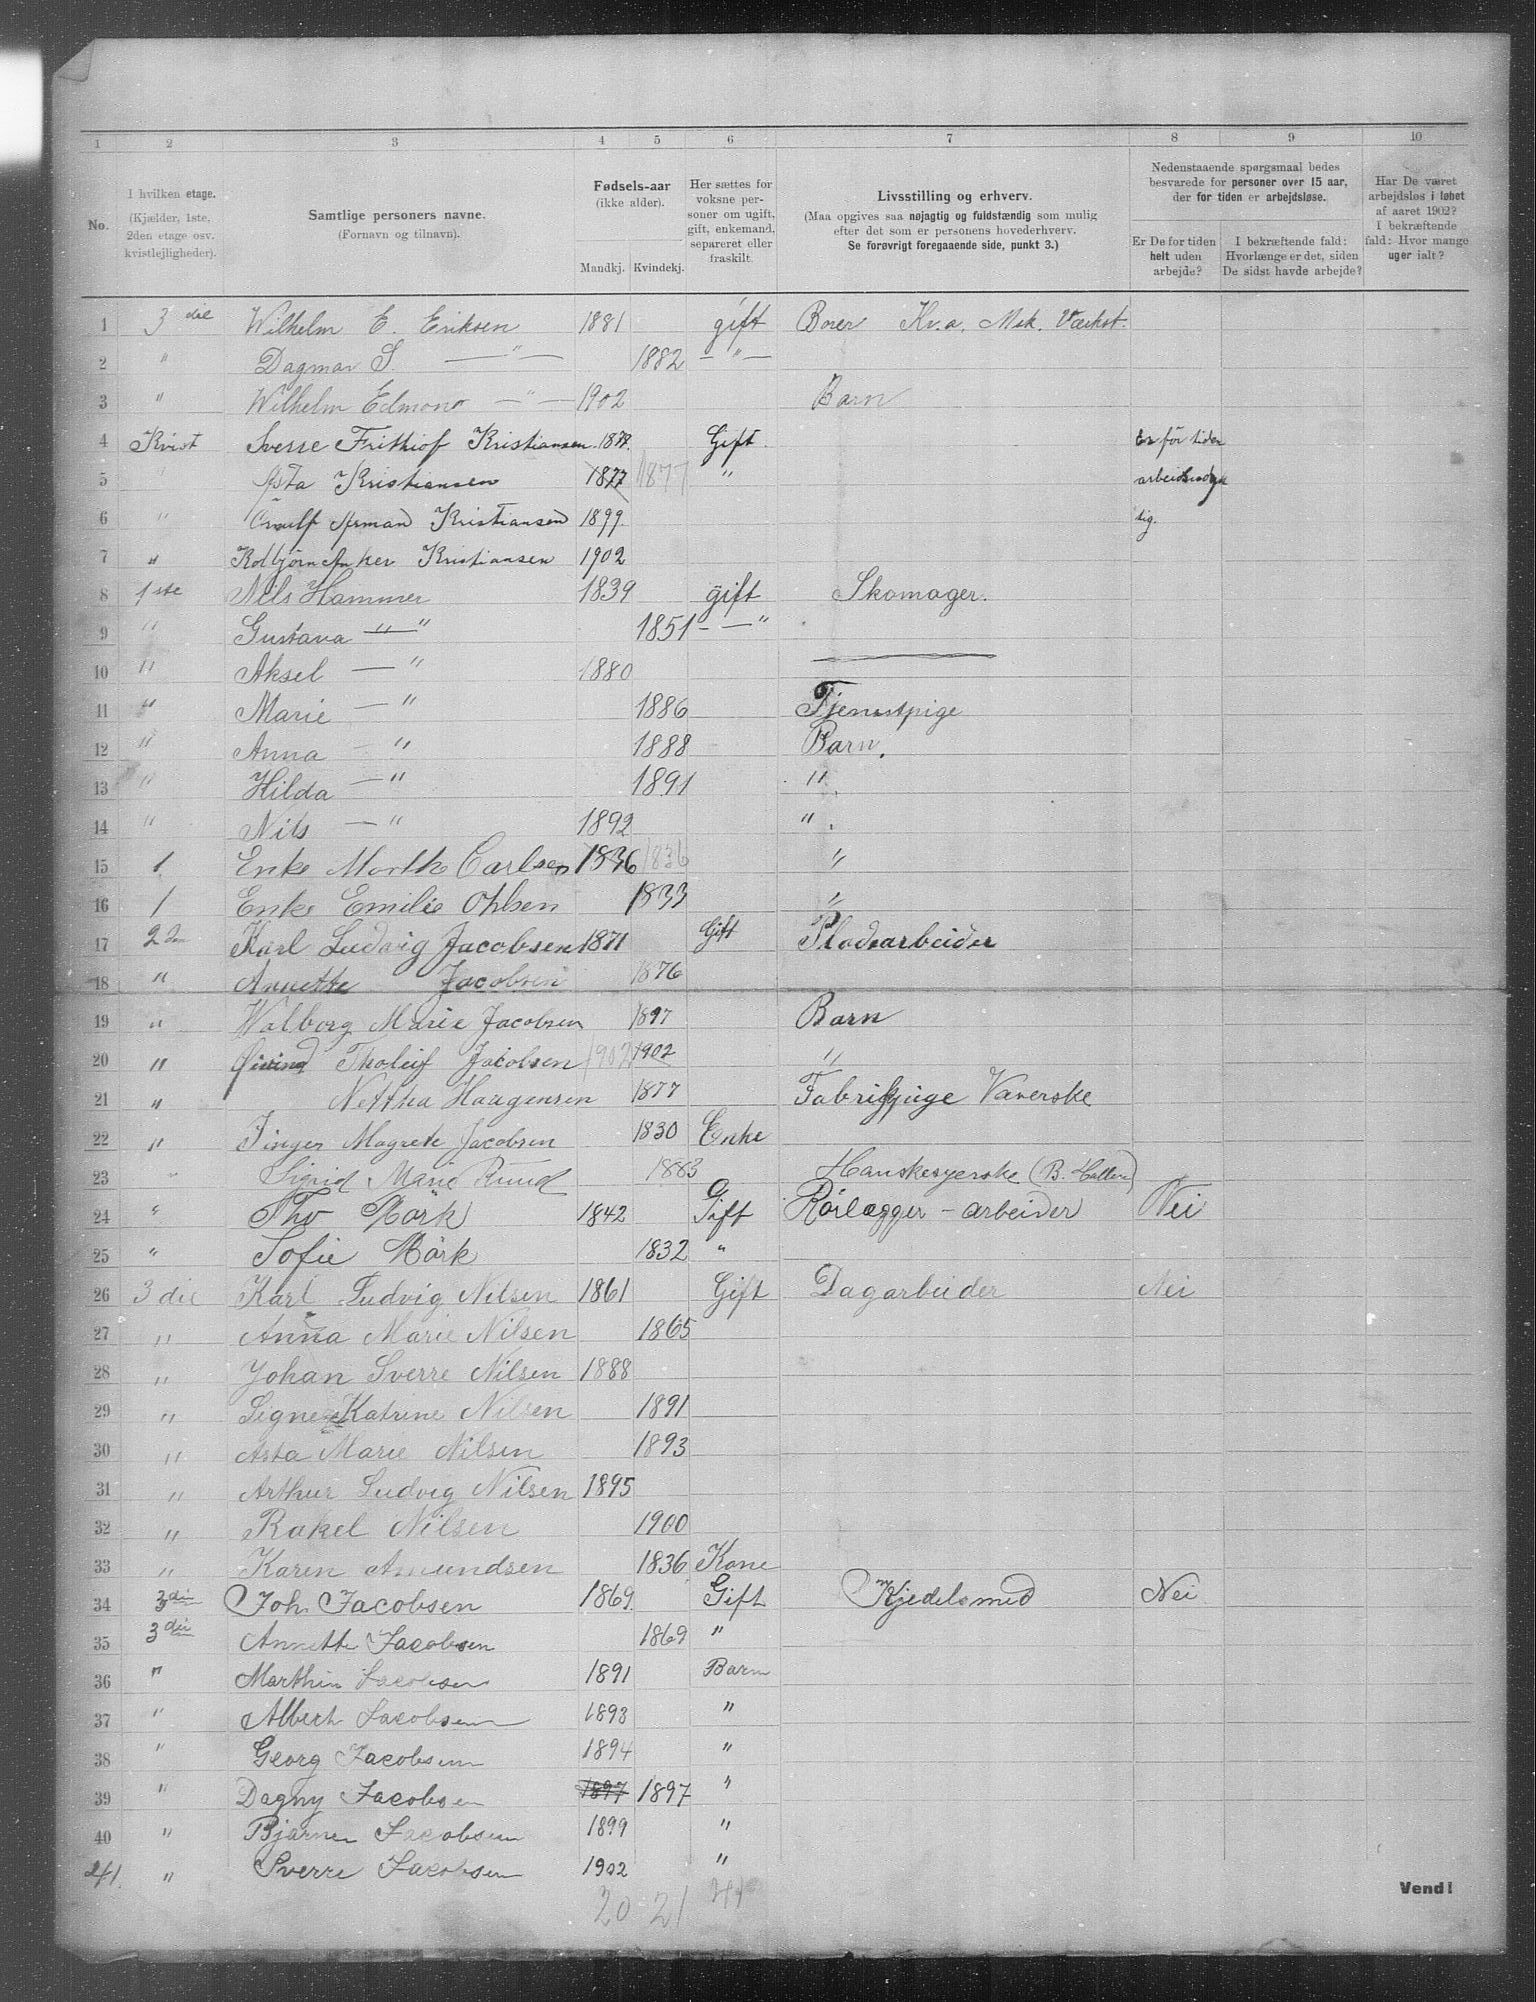 1 2 3 4 5 6 7 8 9 10
No.
I hvilken etage. (Kjælder, 1ste, 2den etage osv. kvistlejligheder).
Samtlige personers navne. (Fornavn og tilnavn).
Fødsels-aar (ikke alder). Mandkj. Kvindekj.
Her sættes for voksne personer om ugift, gift, enkemand, separeret eller fraskilt.
Livsstilling og erhverv. (Maa opgives saa nøjagtig og fuldstændig som mulig efter det som er personens hovederhverv. Se forøvrigt foregaaende side, punkt 3.)
Nedenstaaende spørgsmaal bedes besvarede for personer over 15 aar, der for tiden er arbejdsløse.
Er De for tiden helt uden arbejde?
I bekræftende fald: Hvorlænge er det, siden De sidst havde arbejde?
Har De været arbejdsløs i løbet af aaret 1902? I bekræftende fald: Hvor mange uger ialt?
1 3 die Wilhelm E. Eriksen 1881 gift Borer Kv.a. Mek. Værkst.
2 " Dagmar S. — " — 1882 — " —
3 " Wilhelm Edmond — " — 1902 Barn
4 Kvist Sverre Frithiof Kristiansen 1878. Gift. Er för tiden
5 " Asta Kristiansen 1877 1877 " arbeidsudyg
6 " Arnulf Arman Kristiansen 1899. tig.
7 " Kolbjörn Anker Kristiansen 1902
8 1ste Nils Hammer 1839 gift Skomager.
9 " Gustava — " 1851 - — "
10 " Aksel — " 1880
11 " Marie — " 1886 Tjenestpige
12 " Anna — " 1888 Barn.
13 " Hilda — " 1891 "
14 " Nils — " 1892 " .
15 1 Enke Marthe Carlsen 1836 1836 "
16 1 Enke Emilie Ohlsen 1833 "
17 2den Karl Ludvig Jacobsen 1871 Gift Pladsarbeider
18 " Annette Jacobsen 1876
19 " Walborg Marie Jacobsen 1897 Barn
20 " Øivind Tholeif Jacobsen 1902 1902 "
21 " Nettha Haagensen 1877 Fabrikpige Væverske
22 " Inger Magrete Jacobsen 1830 Enke
23 " Sigrid Marie Ruud 1883 Hanskesyerske (B. )
24 " Thv Mörk 1842 Gift Rörlægger - arbeider Nei
25 " Sofie Mörk 1832 "
26 3 die Karl Ludvig Nilsen 1861 Gift Dagarbeider Nei
27 " Anna Marie Nilsen 1865
28 " Johan Sverre Nilsen 1888
29 " Signe Katrine Nilsen 1891
30 " Asta Marie Nilsen 1893
31 " Arthur Ludvig Nilsen 1895
32 " Rakel Nilsen 1900
33 " Karen Amundsen 1836 Kone
34 3die Joh. Jacobsen 1869. Gift Kjedelsmed Nei
35 3die Annette Jacobsen 1869 "
36 " Marthin Jacobsen 1891 Barn
37 " Albert Jacobsen 1893 "
38 " Georg Jacobsen 1894 "
39 " Dagny Jacobsen 1897 1897 "
40 " Bjarne Jacobsen 1899 "
41. " Sverre Jacobsen 1902 "
20 21 41
Vend!